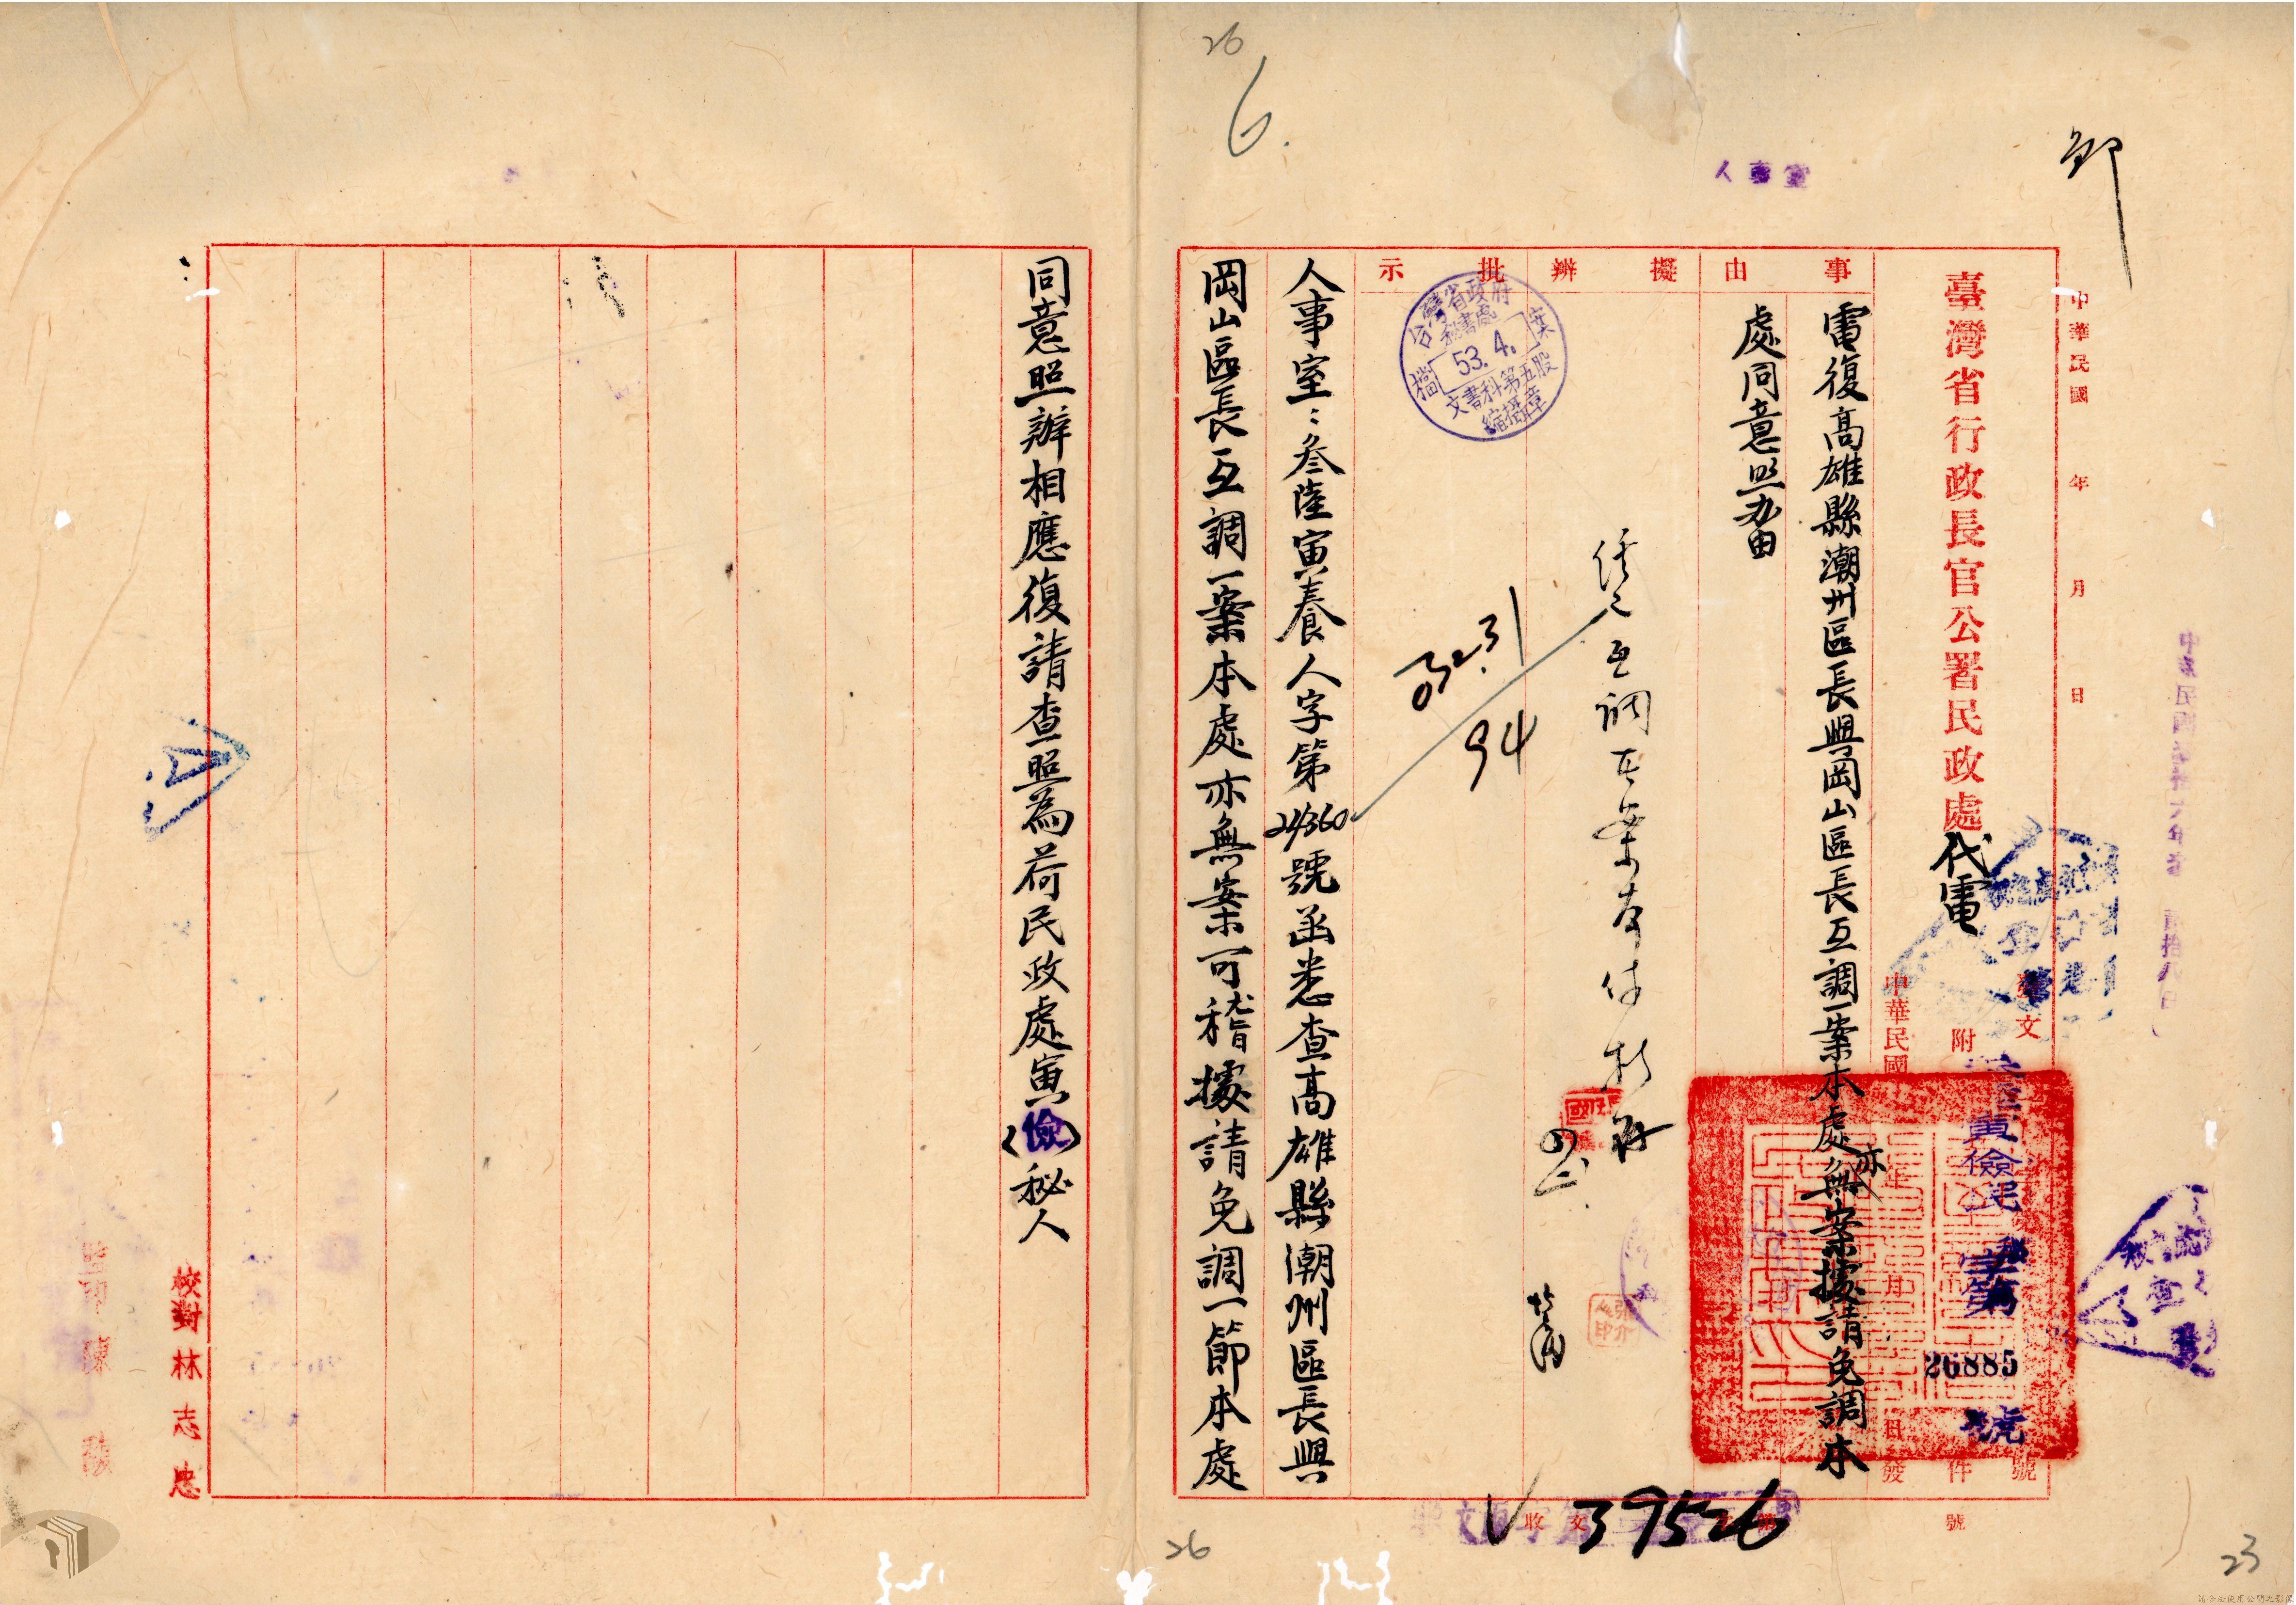 26
6.
人事室
卸
中華民國 年 月 日
臺灣省行政長官公署民政處代電
發文
附
件
號
中華民國 年 月 日發
寅儉民
字第
26885
號
事由
電復高雄縣潮州區長與岡山區長互調一案本處亦無案據請免調本
處同意照办由
擬辦
批示
台灣省政府
秘書處
檔案
53. 4.
文書科第五股
縮攝章
94
人事室：叁陸寅養人字第24360號函悉查高雄縣潮州區長與
岡山區長互調一案本處亦無案可稽據請免調一節本處
同意照辦相應復請查照為荷民政處寅（儉）秘人
校對林志忠
監印陳
收文
39526
號
26
23
請合法使用公開之影像